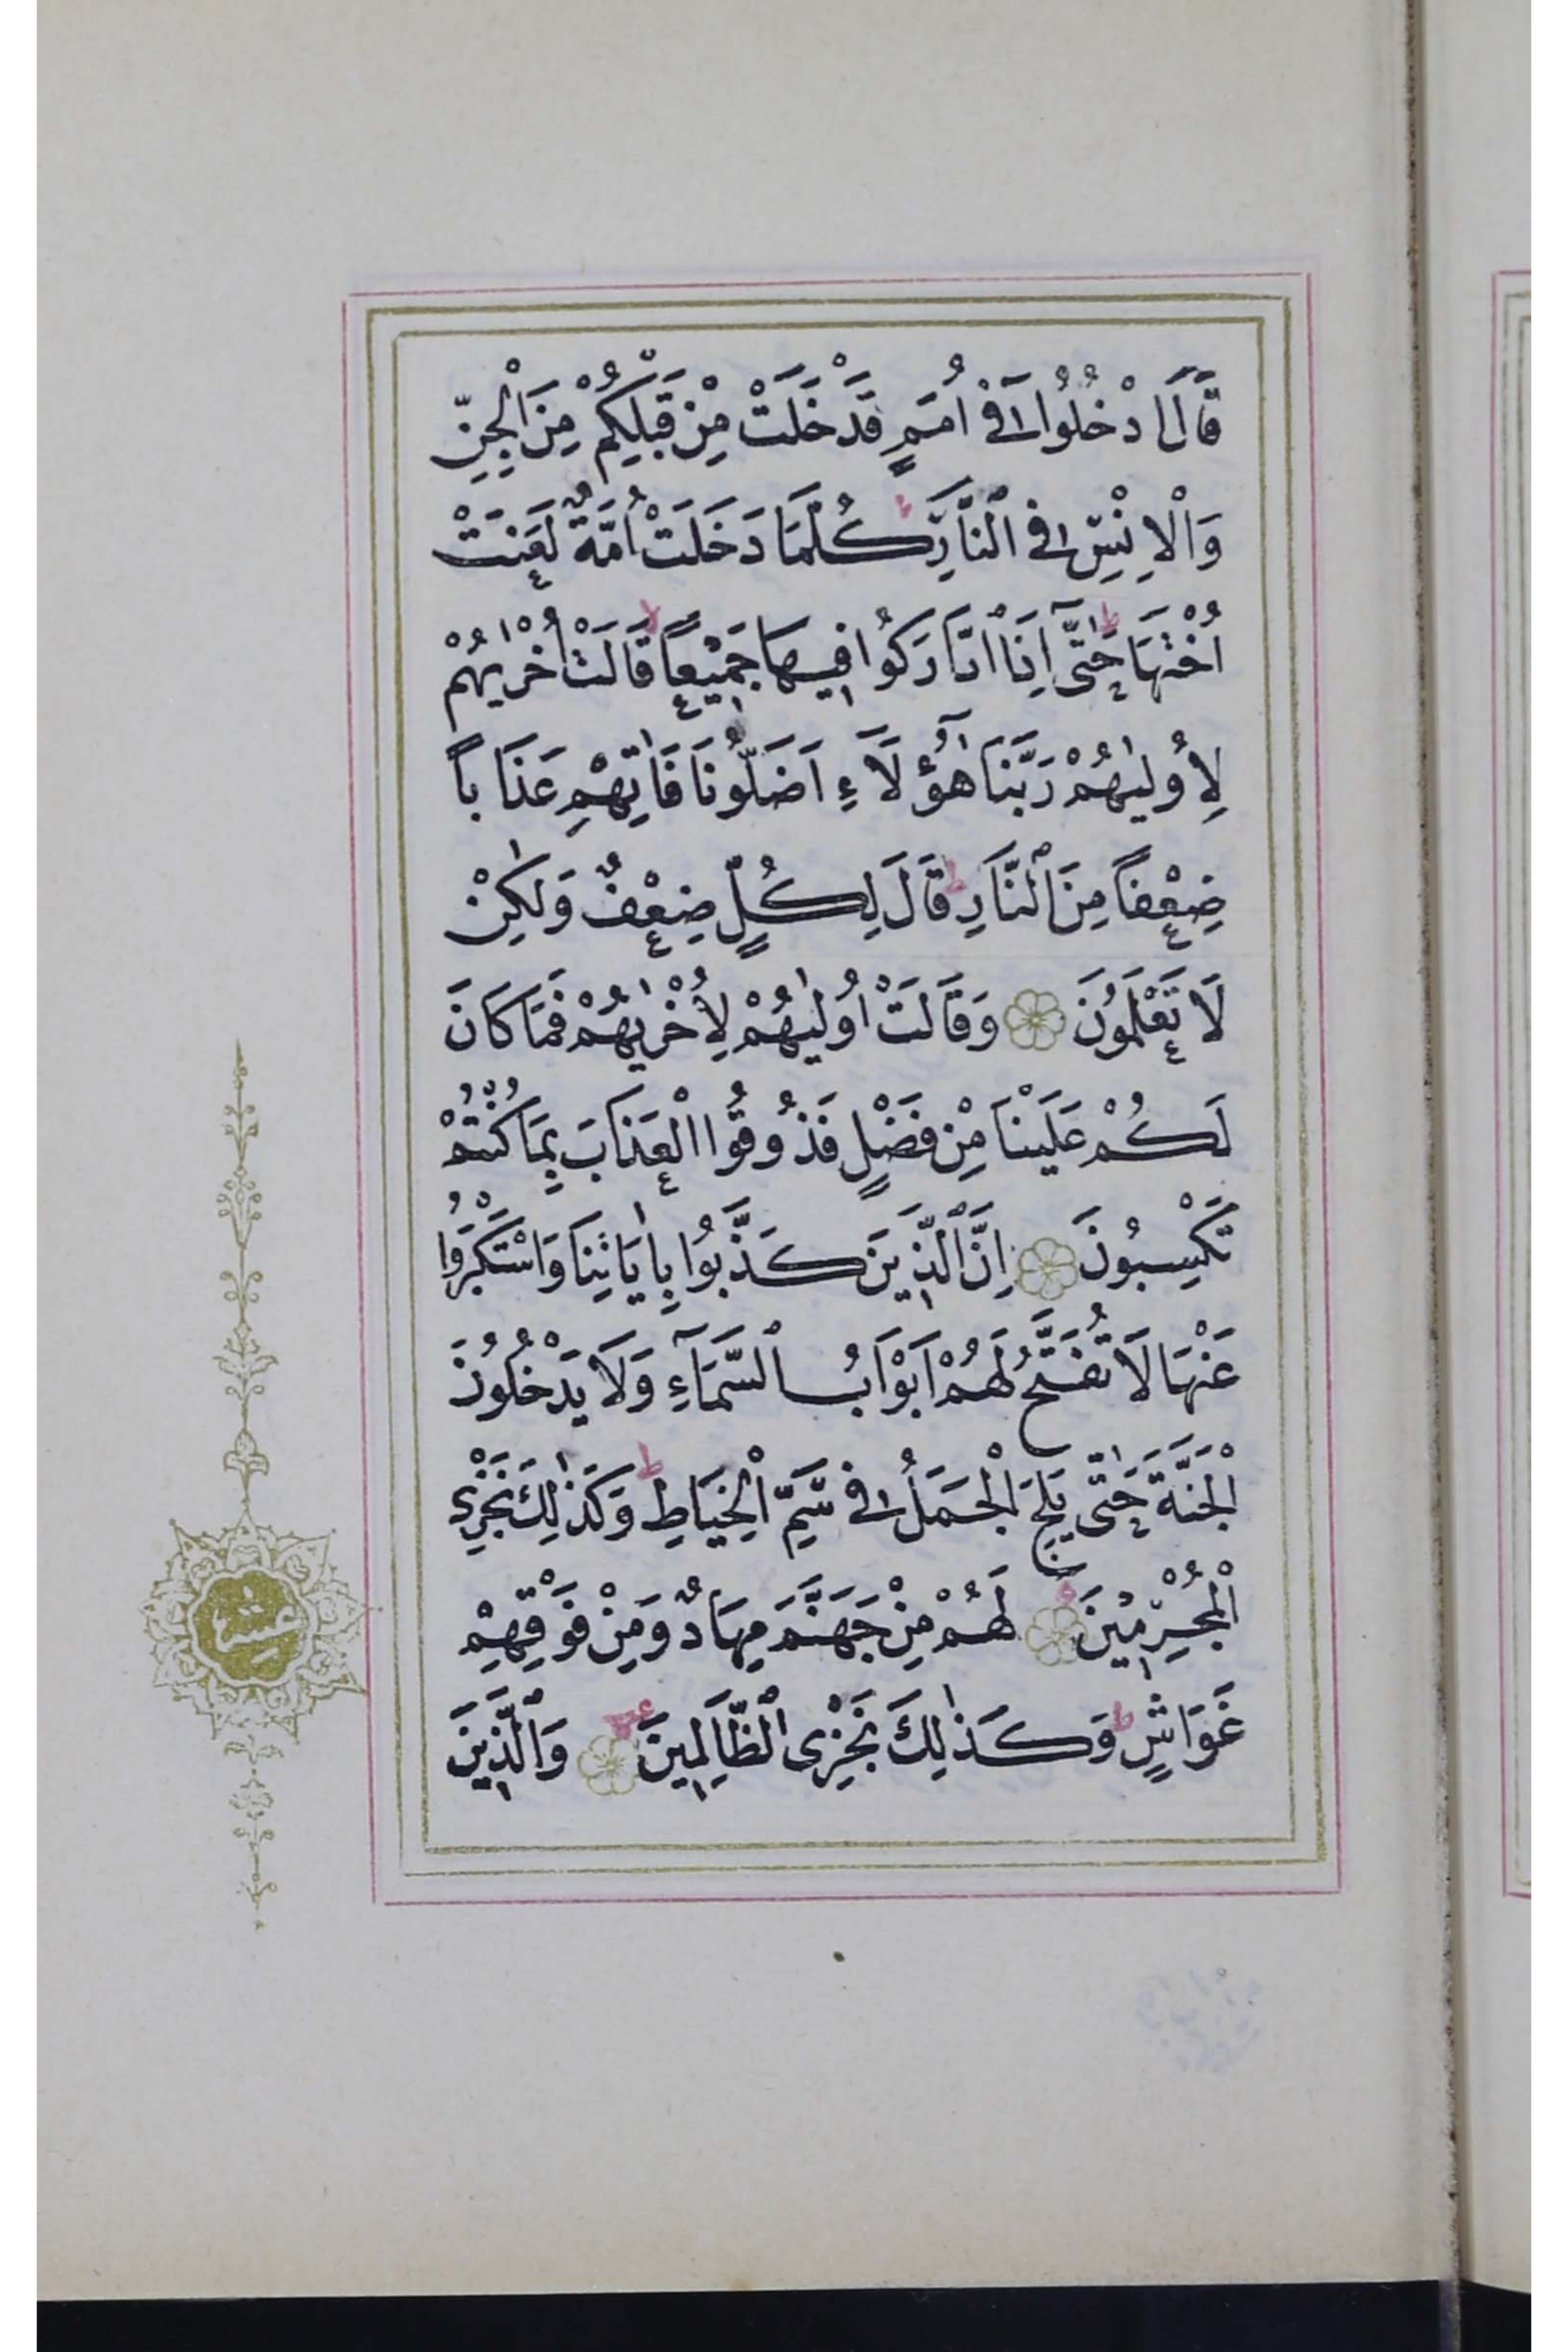 قَالَ ادْخُلُوا فِي أُمَمٍ قَدْ خَلَتْ مِنْ قَبْلِكُمْ مِنَ الْجِنِّ
وَالْاِنْسِ فِي النَّارِ ط كُلَّمَا دَخَلَتْ اُمَّةٌ لَعَنَتْ
اُخْتَهَا ط حَتّٰى اِذَا ادَّارَكُوا فِيهَا جَمِيْعًا لا قَالَتْ اُخْرٰيهُمْ
لِأُولٰيهُمْ رَبَّنَا هٰٓؤُلَاءِ اَضَلُّونَا فَاٰتِهِمْ عَذَابًا
ضِعْفًا مِنَ النَّارِ ط قَالَ لِكُلٍّ ضِعْفٌ وَلٰكِنْ
لَا تَعْلَمُونَ وَقَالَتْ اُولٰيهُمْ لِأُخْرٰيهُمْ فَمَا كَانَ
لَكُمْ عَلَيْنَا مِنْ فَضْلٍ فَذُوقُوا الْعَذَابَ بِمَا كُنْتُمْ
تَكْسِبُونَ اِنَّ الَّذِينَ كَذَّبُوا بِاٰيَاتِنَا وَاسْتَكْبَرُوا
عَنْهَا لَا تُفَتَّحُ لَهُمْ اَبْوَابُ السَّمَآءِ وَلَا يَدْخُلُونَ
الْجَنَّةَ حَتّٰى يَلِجَ الْجَمَلُ فِي سَمِّ الْخِيَاطِ ط وَكَذٰلِكَ نَجْزِي
الْمُجْرِمِيْنَ لَهُمْ مِنْ جَهَنَّمَ مِهَادٌ وَمِنْ فَوْقِهِمْ
غَوَاشٍ ط وَكَذٰلِكَ نَجْزِى الظَّالِمِينَ وَالَّذِينَ
عشر